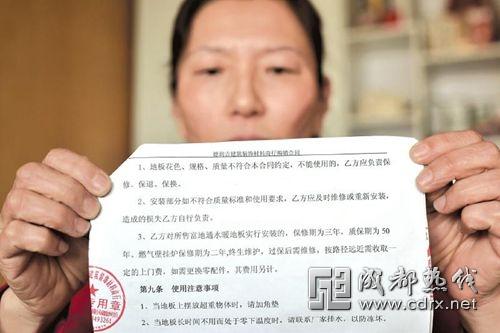 1、地板花色、规格、质量不符合本合同约定，不能使用的，乙方应负责保
修、保退、保换。
2、安装部分如不符合质量标准和使用要求，乙方应及时维修或重新安装，
造成的损失乙方自行负责。
3、乙方对所售富地通水暖地板实行安装的，保修期为三年，质保期为50
年、燃气壁挂炉保修期为二年,终生维护，过保后需维修，按路径远近需收取一
定的上门费，如需更换零配件，其费用另计。
第九条 使用注意事项
1、当地板上摆放超重物体时，请加角垫
2、当地板长时间不用而处于零下温度时，请联系厂家排水，以防冻坏。
专用章
成都热线
www.cdrx.net